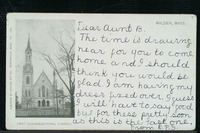 MALDEN, MASS.
Dear Aunt B.
The time is drawing
near for you to come
home and I should
think you would be
glad I am having my
dress fixed over, I guess
I will have to say good bye
for these pretty soon
as this is the last one
From E.P.S.
FIRST CONGREGATIONAL CHURCH